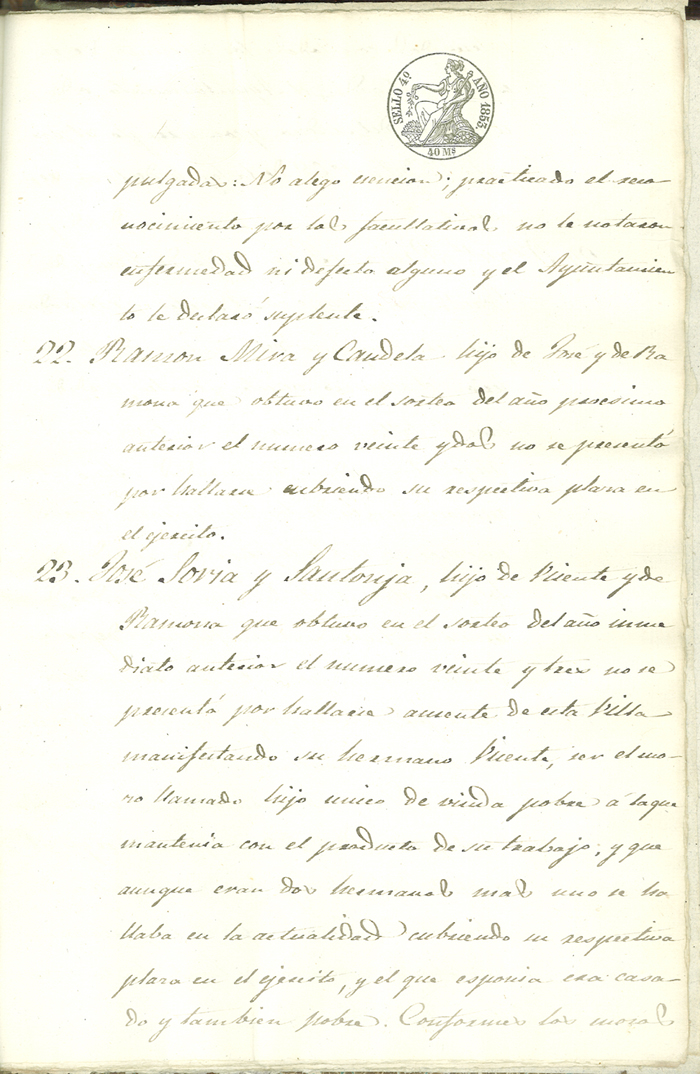 SELLO 4º AÑO 1853.
40 Ms
pulgadas: No alego esencion; practicado el reco
nocimiento por los facultativos no le notaron
enfermedad ni defecto alguno y el Ayuntamien
to le declaró suplente.
22. Ramon Mira y Candela hijo de José y de Ra
mona que obtuvo en el sorteo del año procsimo
anterior el numero veinte y dos no se presentó
por hallarse cubriendo su respectiva plaza en
el ejercito.
23. José Soria y Santonja, hijo de Vicente y de
Ramona que obtuvo en el sorteo del año inme
diato anterior el numero veinte y tres no se
presentó por hallarse ausente de esta Villa
manifestando su hermano Vicente, ser el mo-
zo llamado hijo unico de viuda pobre á la que
mantenia con el producto de su trabajo, y que
aunque eran dos hermanos mas uno se ha
llaba en la actualidad cubriendo su respectiva
plaza en el ejercito, y el que esponia era casa-
do y tambien pobre. Conformes los mozos